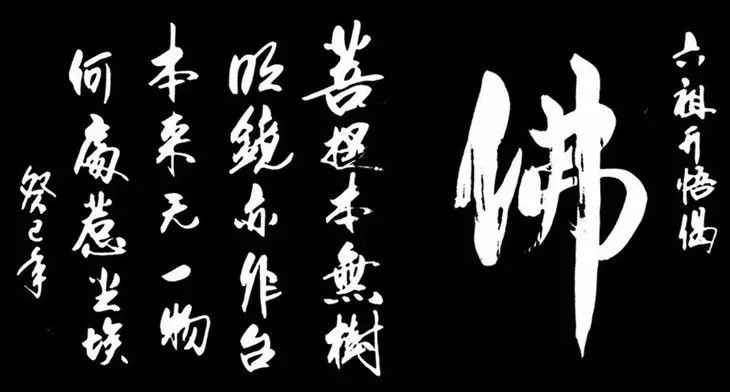 六祖开悟偈
佛
菩提本無樹
明鏡亦作台
本来无一物
何處惹尘埃
癸巳年